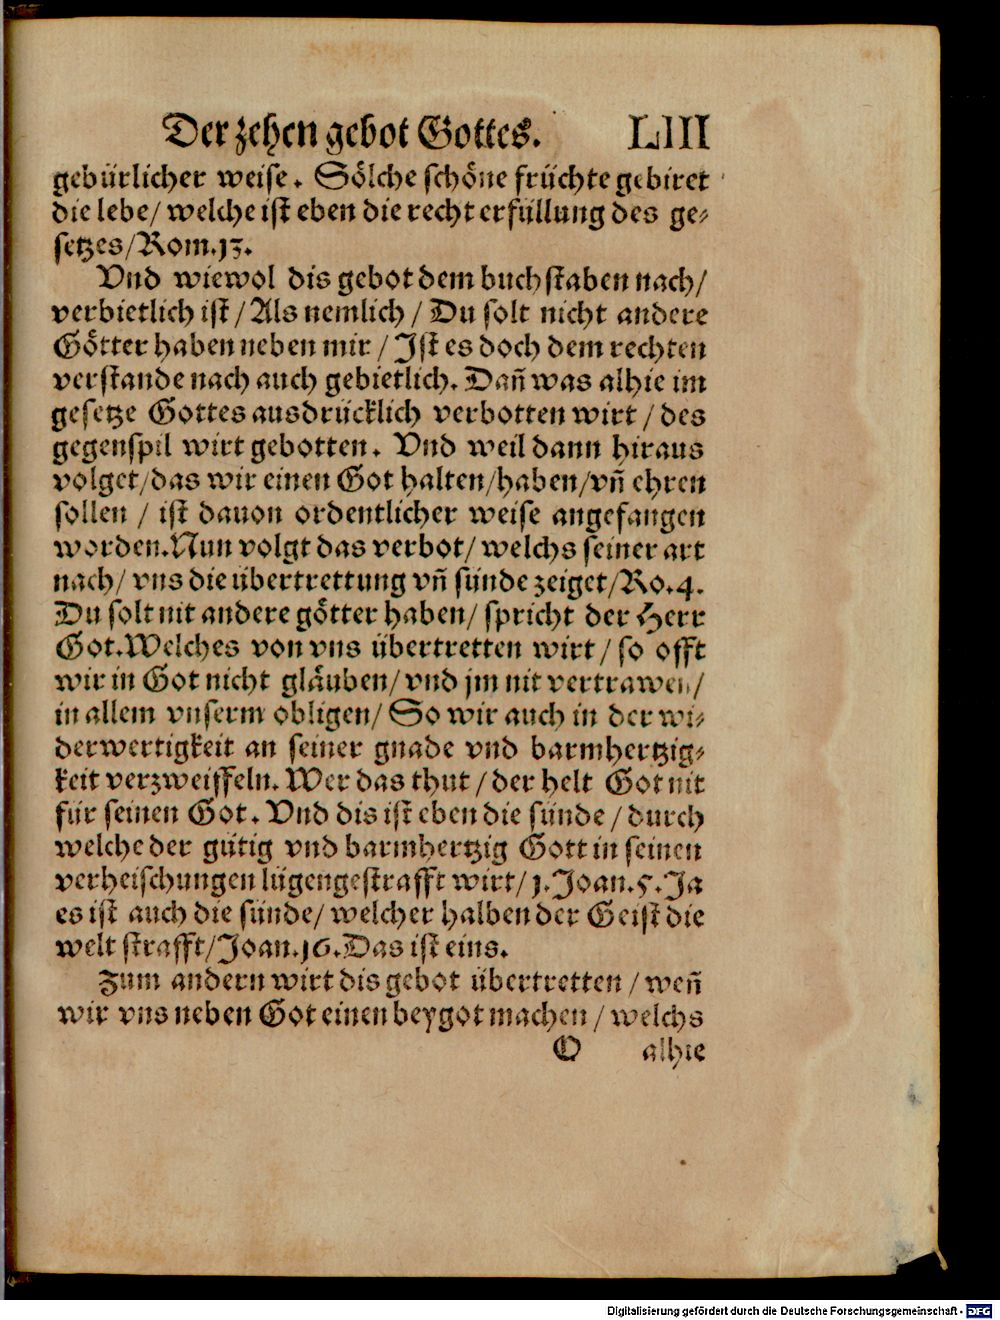 Der zehen gebot Gottes. LIII
gebürlicher weise. Sölche schöne früchte gebiret
die lebe/ welche ist eben die recht erfüllung des ge⸗
setzes/Rom.13.
Vnd wiewol dis gebot dem buchstaben nach/
verbietlich ist / Als nemlich / Du solt nicht andere
Götter haben neben mir / Ist es doch dem rechten
verstande nach auch gebietlich. Dañ was alhie im
gesetze Gottes ausdrücklich verbotten wirt / des
gegenspil wirt gebotten. Vnd weil dann hiraus
volget/das wir einen Got halten/haben/vñ ehren
sollen / ist dauon ordentlicher weise angefangen
worden.Nun volgt das verbot/ welchs seiner art
nach/ vns die übertrettung vñ sünde zeiget/Ro.4.
Du solt nit andere götter haben/ spricht der Herr
Got.Welches von vns übertretten wirt / so offt
wir in Got nicht gläuben/ vnd jm nit vertrawen/
in allem vnserm obligen/ So wir auch in der wi⸗
derwertigkeit an seiner gnade vnd barmhertzig⸗
keit verzweiffeln. Wer das thut / der helt Got nit
für seinen Got. Vnd dis ist eben die sünde / durch
welche der gütig vnd barmhertzig Gott in seinen
verheischungen lügengestrafft wirt/ 1.Joan.5.Ja
es ist auch die sünde/ welcher halben der Geist die
welt strafft/Joan.16.Das ist eins.
Zum andern wirt dis gebot übertretten / weñ
wir vns neben Got einen beygot machen / welchs
O alhie
Digitalisierung gefördert durch die Deutsche Forschungsgemeinschaft - DFG